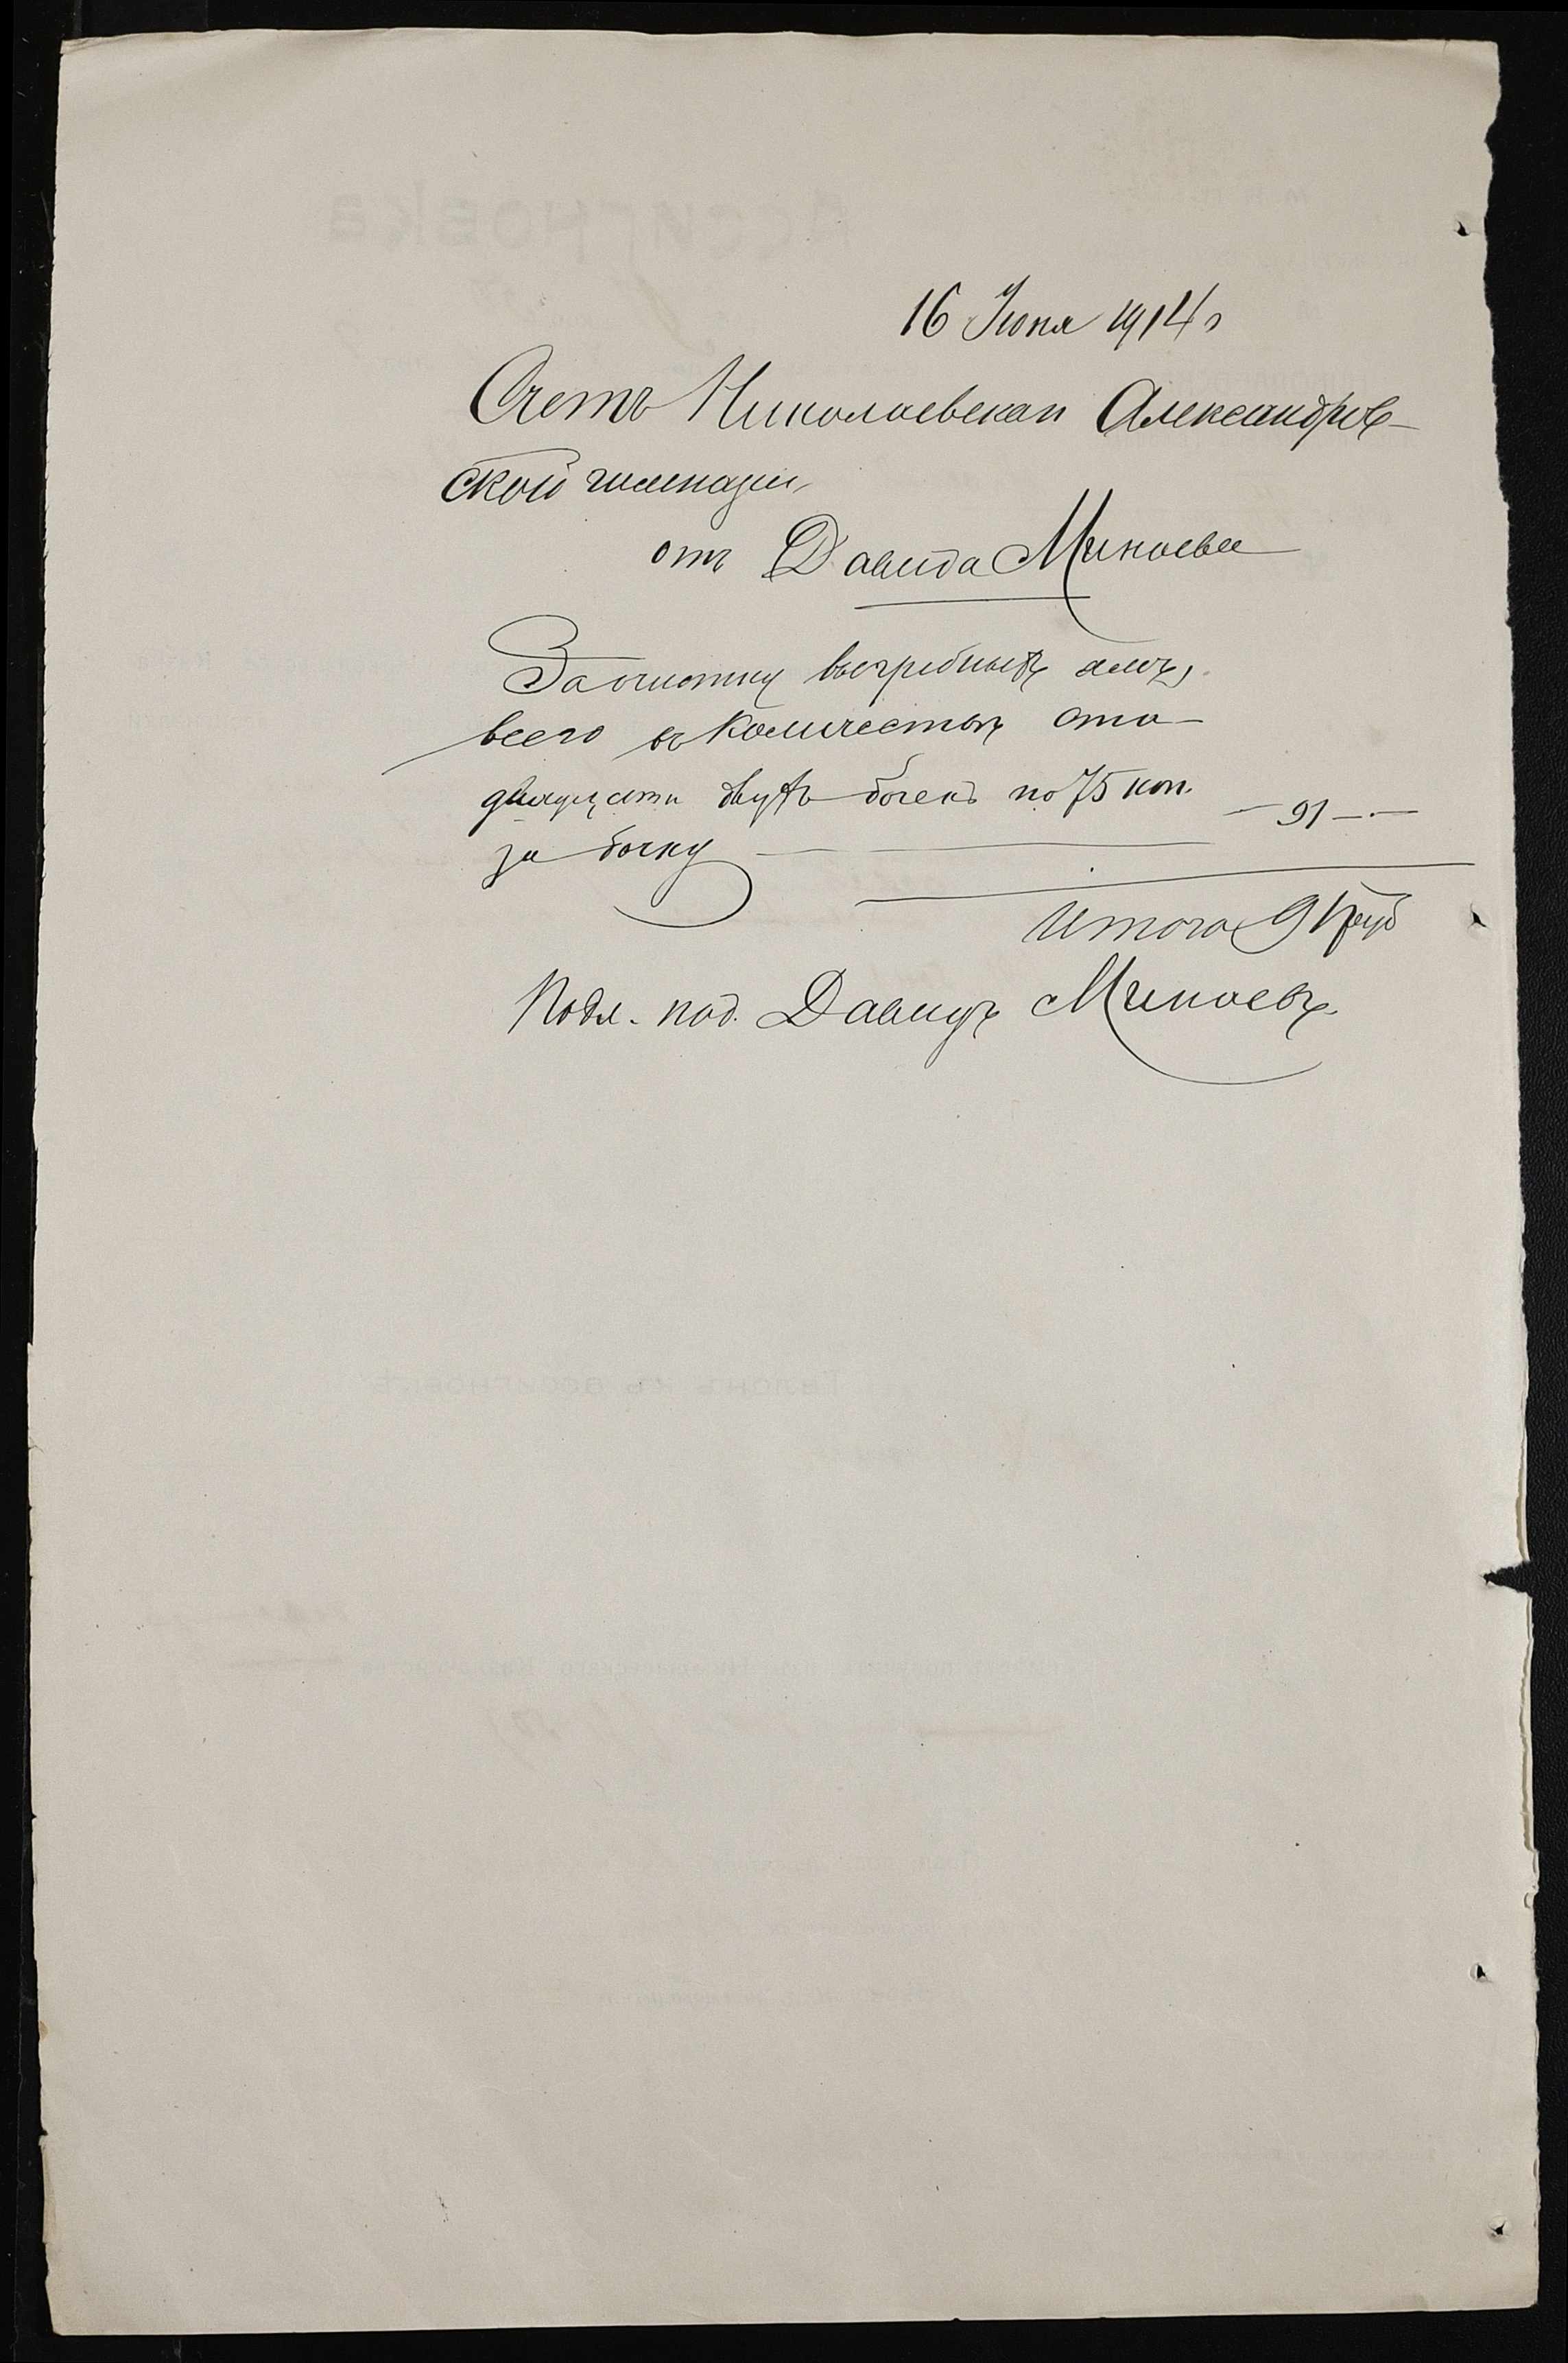 16 Июня 1914 г
Счетъ Николаевская Александров-
ской гимназии,
отъ Давида Минаева
За очистку выгребныхъ ямъ,
всего въ количествѣ сто
двадцати двухъ бочекъ по 75 коп.
за бочку — — 91 —
Итого 91 руб
Подл. под. Давидъ Минаевъ.